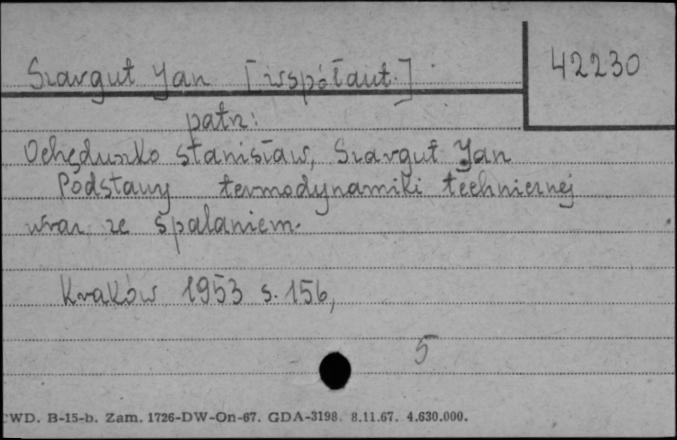 Szargut Jan [współaut.]
42230
patrz:
Ochęduszko Stanisław, Szargut Jan
Podstawy termodynamiki technicznej
wraz ze spalaniem.
Kraków 1953 s. 156,
5
CWD. B-15-b. Zam. 1726-DW-On-67. GDA-3198. 8.11.67. 4.630.000.